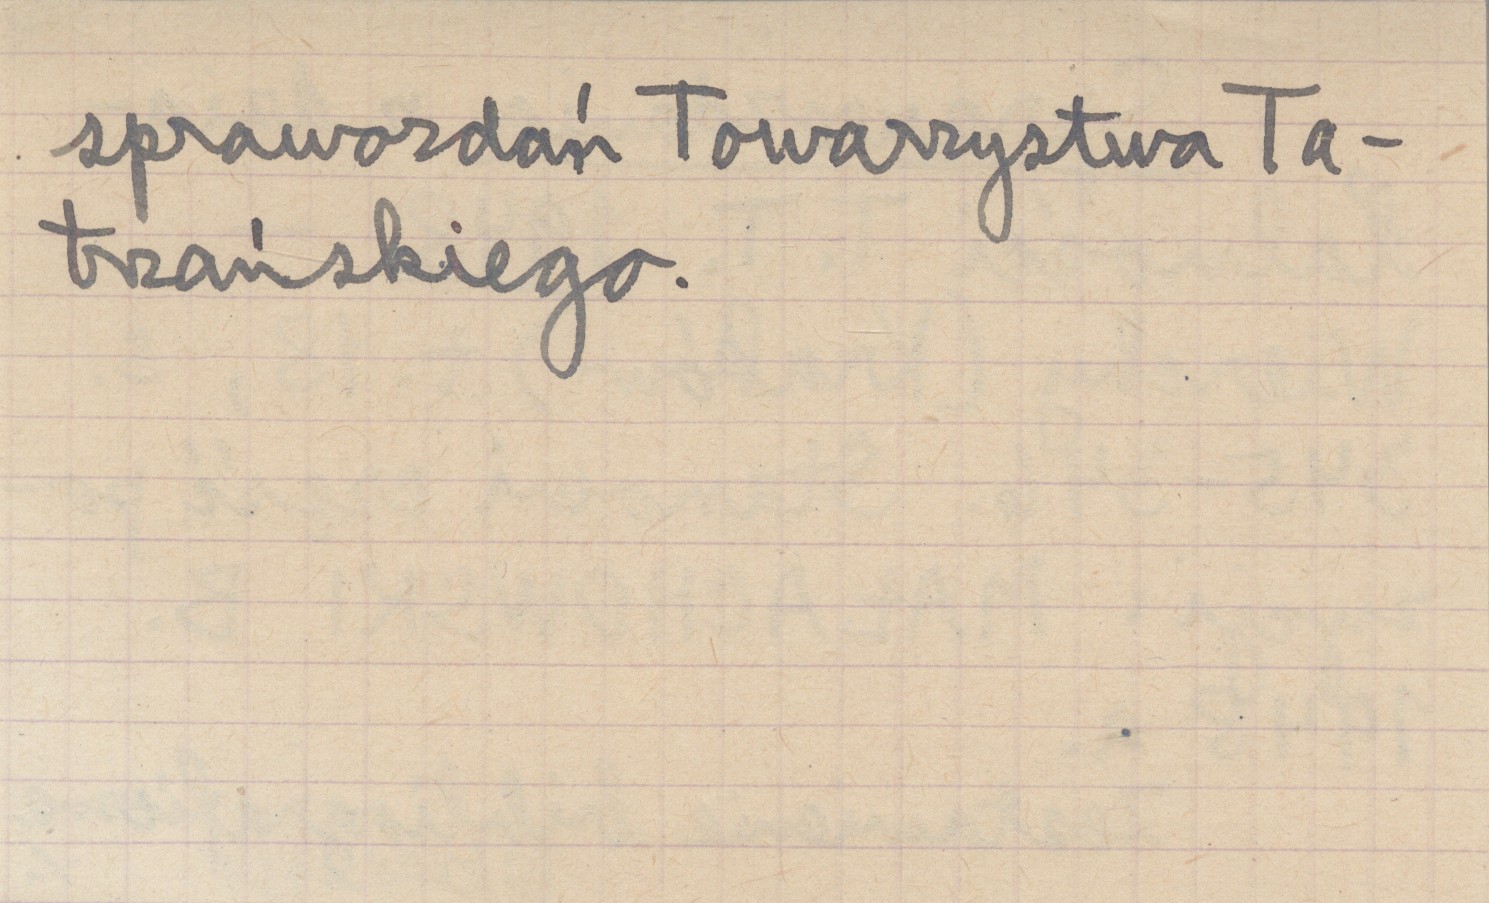 sprawozdań Towarzystwa Ta-
trzańskiego.